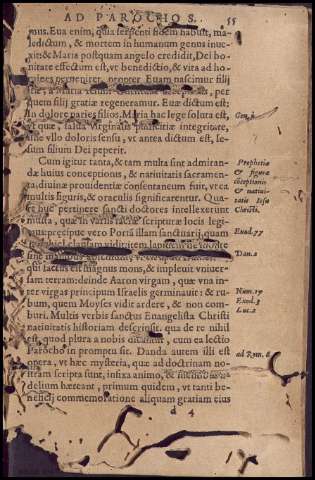 AD PAROCHOS. 55
mus. Eua enim, quia serpenti fidem habuit, ma-
ledictum, & mortem in humanum genus inue-
xit: & Maria posteaquam angelo credidit, Dei bo-
nitate effectum est, vt benedictio, & vita ad ho-
mines perueniret. propter Euam nascimur filij
iræ, a Maria Iesum Christum per
quem filij gratiæ regeneramur. Euæ dictum est:
In dolore paries filios. Maria hac lege soluta est,
vt quæ, salua virginalis pudicitiæ integritate,
sine vllo doloris sensu, vt antea dictum est, Ie-
sum filium Dei peperit.
Gen. 3
Cum igitur tanta, & tam multa sint admiran-
dæ huius conceptionis, & natiuitatis sacramen-
ta, diuinæ prouidentiæ consentaneum fuit, vt ea
multis figuris, & oraculis significarentur. Quare
huc pertinere sancti doctores intellexerunt
multa, quæ in variis sacræ scripturæ locis legi-
mus: præcipue vero Portā illam sanctuarij, quam
Ezechiel clausam vidit: item lapidem de monte
sine manibus
qui factus est magnus mons, & impleuit vniuer-
sam terram: deinde Aaron virgam, quæ vna in-
ter virgas principum Israelis germinauit: & ru-
bum, quem Moyses vidit ardere, & non com-
buri. Multis verbis sanctus Euangelista Christi
natiuitatis historiam descripsit. qua de re nihil
est, quod plura a nobis dicantur, cum ea lectio
Parocho in promptu sit. Danda autem illi est
opera, vt hæc mysteria, quæ ad doctrinam no-
stram scripta sunt, infixa animo, & mentibus fi-
delium hæreant, primum quidem, vt tanti be-
neficij commemoratione aliquam gratiam eius
Prophetiæ
& figuræ
cōceptionis
& natiui-
tatis Iesu
Christi.
Dan. 2
Num. 19
Exod. 3
Luc. 2
ad Rom.
d 4